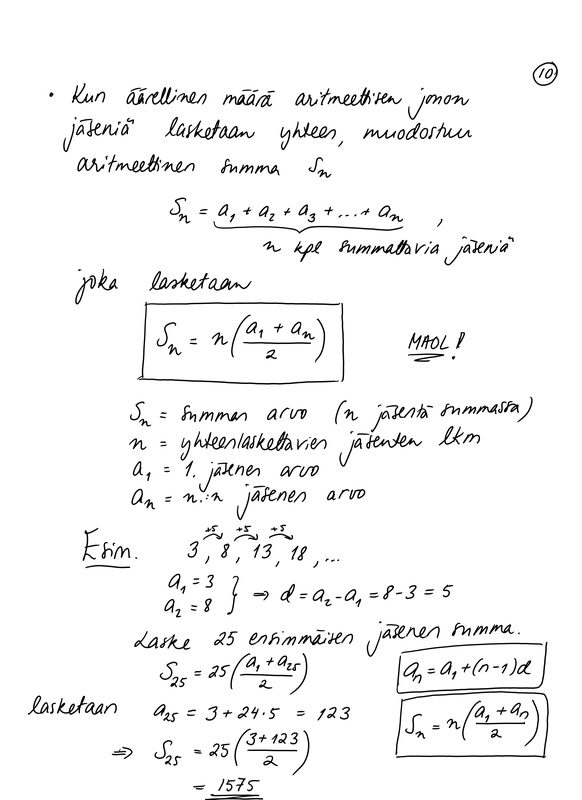 10
• Kun äärellinen määrä aritmeettisen jonon
jäseniä lasketaan yhteen, muodostuu
aritmeettinen summa Sₙ
Sₙ = a₁ + a₂ + a₃ + ... + aₙ ,
n kpl summattavia jäseniä
joka lasketaan
Sₙ = n((a₁ + aₙ)/2)
MAOL!
Sₙ = summan arvo (n jäsentä summassa)
n = yhteenlaskettavien jäsenten lkm
a₁ = 1. jäsenen arvo
aₙ = n:n jäsenen arvo
+5 +5 +5
Esim. 3, 8, 13, 18, ...
a₁ = 3
a₂ = 8 } ⇒ d = a₂ - a₁ = 8 - 3 = 5
Laske 25 ensimmäisen jäsenen summa.
S₂₅ = 25((a₁ + a₂₅)/2)
aₙ = a₁ + (n-1)d
lasketaan a₂₅ = 3 + 24·5 = 123
Sₙ = n((a₁ + aₙ)/2)
⇒ S₂₅ = 25((3+123)/2)
= 1575